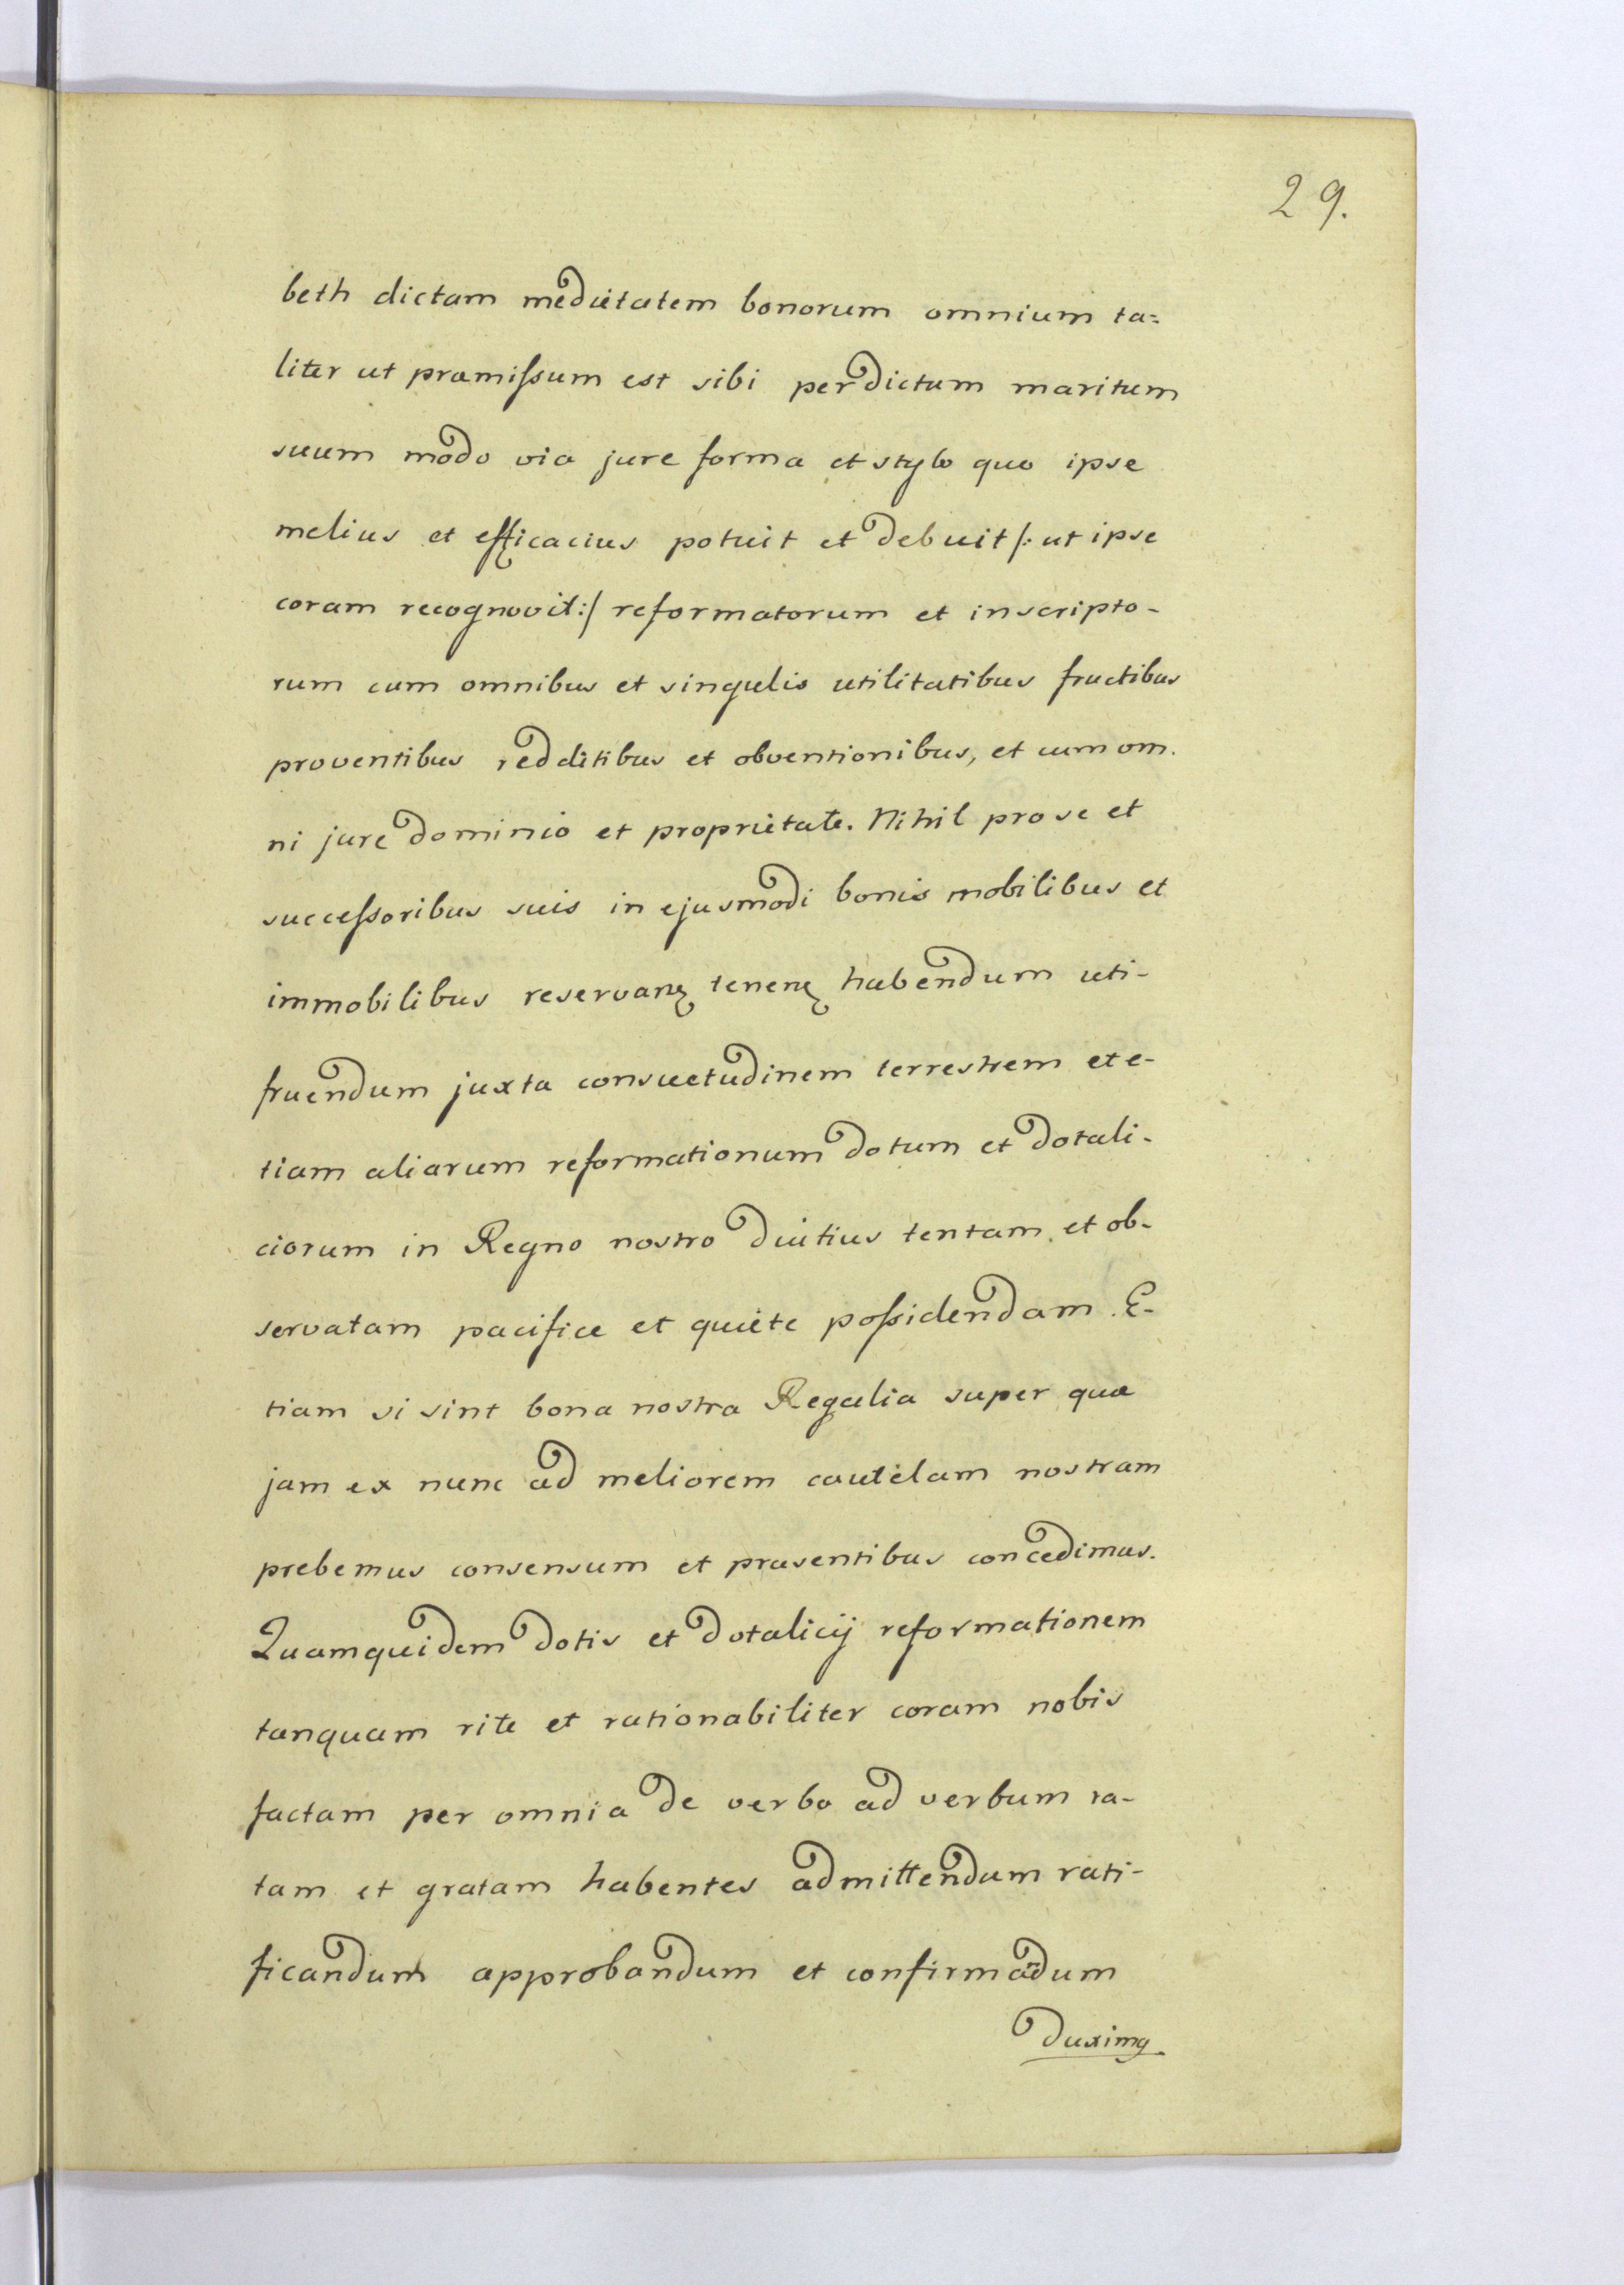 29.
beth dictam medietatem bonorum omnium ta=
liter ut præmissum est sibi per dictum maritum
suum modo via jure forma et stylo quo ipse
melius et efficacius potuit et debuit /: ut ipse
coram recognovit :/ reformatorum et inscripto-
rum cum omnibus et singulis utilitatibus fructibus
proventibus redditibus et obventionibus, et cum om-
ni jure dominio et proprietate. Nihil pro se et
successoribus suis in ejusmodi bonis mobilibus et
immobilibus reservanꝫ tenenꝫ habendum uti-
fruendum juxta consuetudinem terrestrem et e-
tiam aliarum reformationum dotum et dotali-
ciorum in Regno nostro diutius tentam et ob-
servatam pacifice et quiete possidendam. E-
tiam si sint bona nostra Regalia super quæ
jam ex nunc ad meliorem cautelam nostram
prebemus consensum et præsentibus concedimus.
Quamquidem dotis et dotalicij reformationem
tanquam rite et rationabiliter coram nobis
factam per omnia de verbo ad verbum ra-
tam et gratam habentes admittendum rati-
ficandum approbandum et confirmādum
duximꝯ